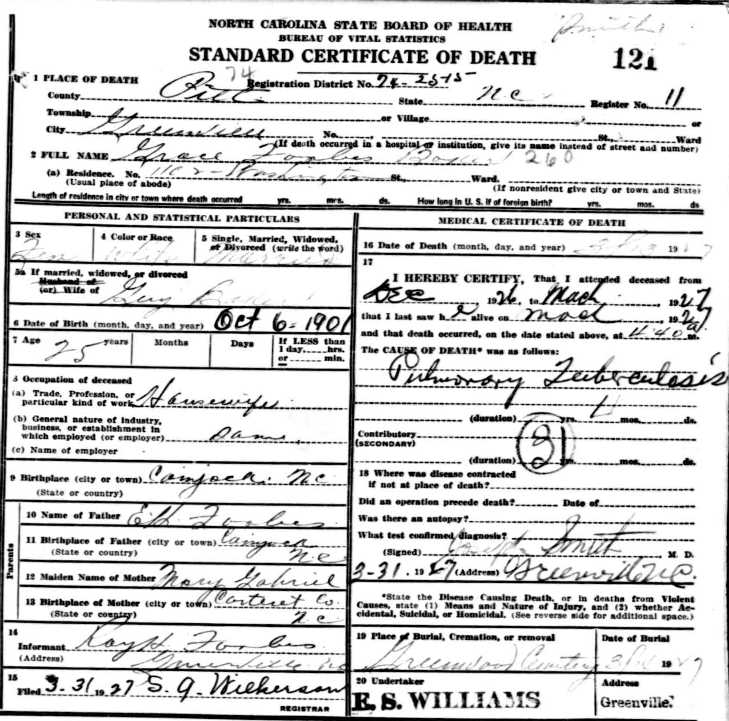 NORTH CAROLINA STATE BOARD OF HEALTH
BUREAU OF VITAL STATISTICS
STANDARD CERTIFICATE OF DEATH
121
1 PLACE OF DEATH
74
Registration District No. 74-2515
County Pitt State NC Register No. 11
Township or Village or
City Greenville No. St., Ward
(If death occurred in a hospital or institution, give its name instead of street and number)
2 FULL NAME Grace Forbes 260
(a) Residence. No. Washington St., Ward.
(Usual place of abode) (If nonresident give city or town and State)
Length of residence in city or town where death occurred yrs. mrs. ds. How long in U. S. if of foreign birth? yrs. mos. ds.
PERSONAL AND STATISTICAL PARTICULARS
3 Sex 4 Color or Race 5 Single, Married, Widowed, or Divorced (write the word)
Fem White Married
5a If married, widowed, or divorced
Husband of
(or) Wife of Guy
6 Date of Birth (month, day, and year) Oct 6-1901
7 Age 25 years Months Days If LESS than 1 day, hrs. or min.
8 Occupation of deceased
(a) Trade, Profession, or particular kind of work Housewife
(b) General nature of industry, business, or establishment in which employed (or employer) Same
(c) Name of employer
9 Birthplace (city or town) Coinjock, NC
(State or country)
Parents
10 Name of Father E.H. Forbes
11 Birthplace of Father (city or town) Coinjock
(State or country) NC
12 Maiden Name of Mother Mary Gabriel
13 Birthplace of Mother (city or town) Carteret Co.
(State or country) NC
14
Informant Ray H Forbes
(Address) Greenville NC
15
Filed 3-31 1927 S. G. Wilkerson
REGISTRAR
MEDICAL CERTIFICATE OF DEATH
16 Date of Death (month, day, and year) 1927
17
I HEREBY CERTIFY, That I attended deceased from
Dec 1926, to Mach, 1927
that I last saw h e alive on Mach 1927
and that death occurred, on the date stated above, at 4:40 a m.
The CAUSE OF DEATH* was as follows:
Pulmonary Tuberculosis
(duration) yrs. 4 mos. ds.
Contributory
(SECONDARY)
31
(duration) yrs. mos. ds.
18 Where was disease contracted
if not at place of death?
Did an operation precede death? Date of
Was there an autopsy?
What test confirmed diagnosis?
(Signed) Smith M. D.
3-31 1927 (Address) Greenville N.C.
*State the Disease Causing Death, or in deaths from Violent
Causes, state (1) Means and Nature of Injury, and (2) whether Accidental, Suicidal, or Homicidal. (See reverse side for additional space.)
19 Place of Burial, Cremation, or removal Date of Burial
Greenwood Cemetery 1927
20 Undertaker Address
E. S. WILLIAMS Greenville